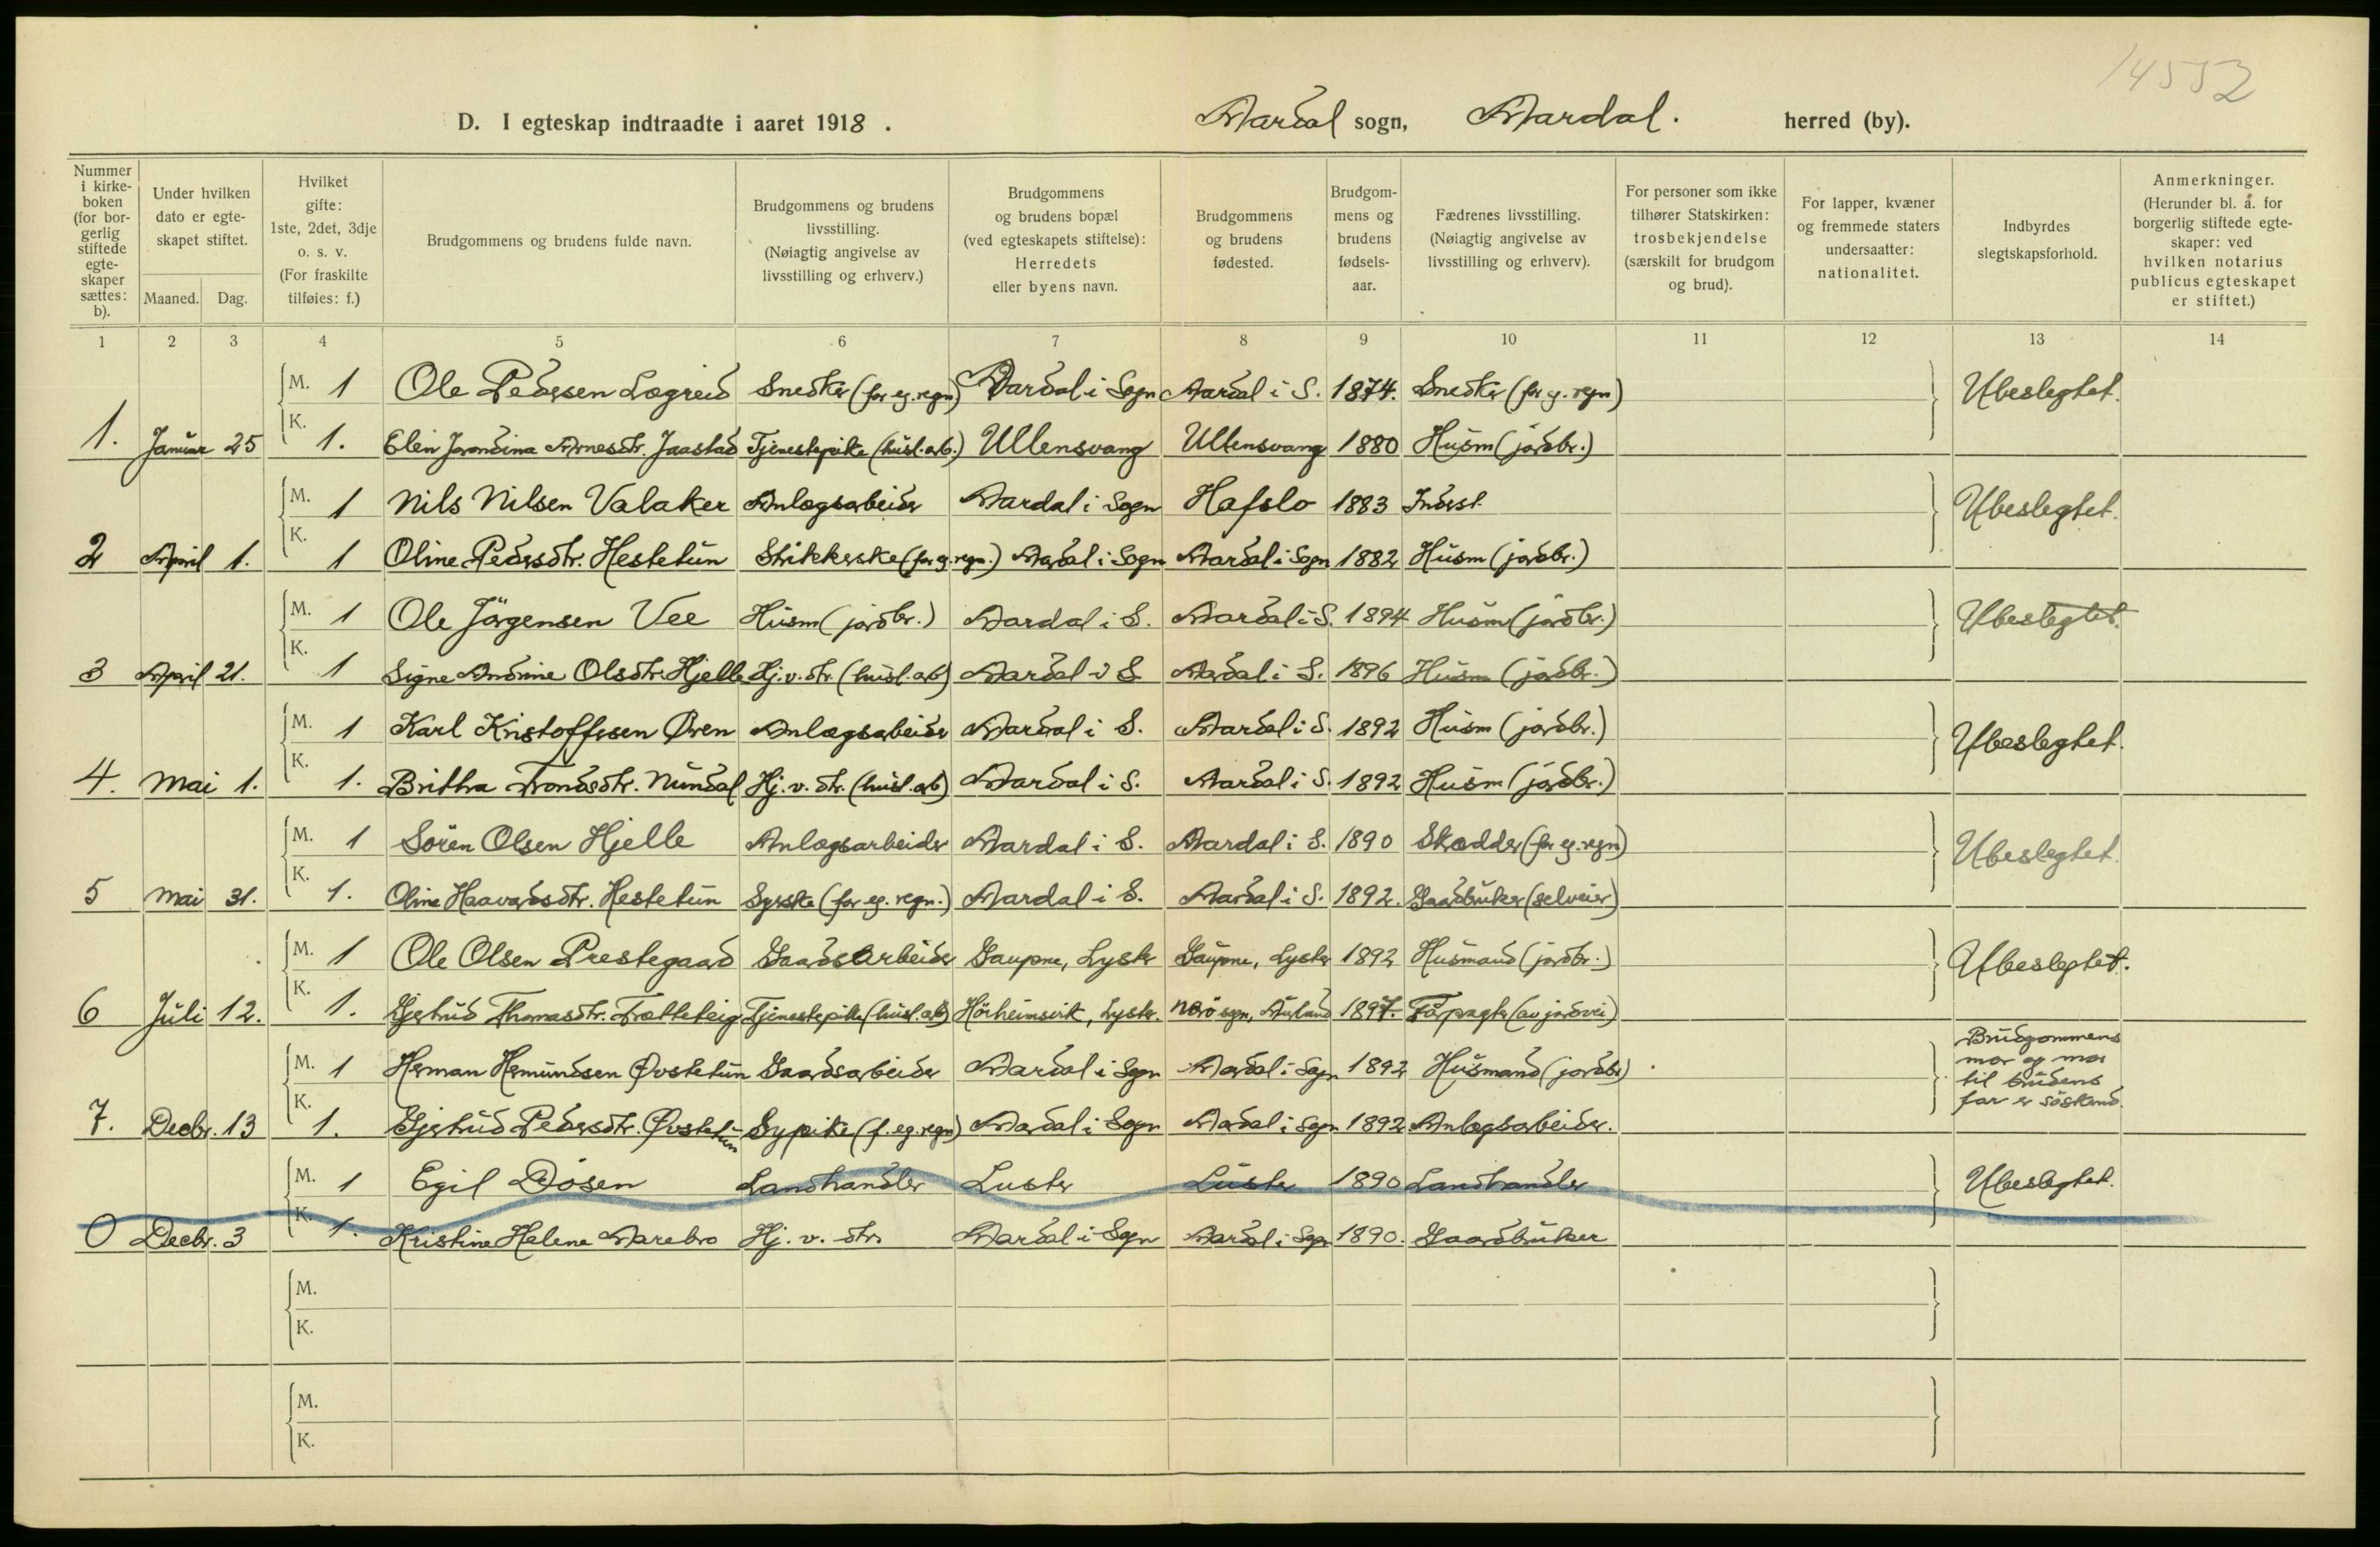 14552
D. I egteskap indtraadte i aaret 1918 . Aardal sogn, Aardal. herred (by).
Nummer i kirke-boken (for bor-gerlig stiftede egte-skaper sættes: b).
Under hvilken dato er egte-skapet stiftet.
Maaned. Dag.
Hvilket gifte: 1ste, 2det, 3dje o. s. v. (For fraskilte tilføies: f.)
Brudgommens og brudens fulde navn.
Brudgommens og brudens livsstilling. (Nøiagtig angivelse av livsstilling og erhverv.)
Brudgommens og brudens bopæl (ved egteskapets stiftelse): Herredets eller byens navn.
Brudgommens og brudens fødested.
Brudgom-mens og brudens fødsels-aar.
Fædrenes livsstilling. (Nøiagtig angivelse av livsstilling og erhverv).
For personer som ikke tilhører Statskirken: trosbekjendelse (særskilt for brudgom og brud).
For lapper, kvæner og fremmede staters undersaatter: nationalitet.
Indbyrdes slegtskapsforhold.
Anmerkninger. (Herunder bl. a. for borgerlig stiftede egte-skaper: ved hvilken notarius publicus egteskapet er stiftet.)
1 2 3 4 5 6 7 8 9 10 11 12 13 14
M. 1 Ole Pedersen Lægreid Snedker (for eg. regn) Aardal i Sogn Aardal i S. 1874. Snedker (for eg. regn) Ubeslegtet.
1. Januar 25 K. 1. Elin Jorandina Arnesdtr. Jaastad Tjenestepike (husl. arb.) Ullensvang Ullensvang 1880 Husm (jordbr.)
M. 1 Nils Nilsen Valaker Anlægsarbeider Aardal i Sogn Hafslo 1883 Inderst. Ubeslegtet.
2 April 1. K. 1 Oline Pedersdtr. Hestetun Strikkerske (for eg. regn.) Aardal i Sogn Aardal i Sogn 1882 Husm (jordbr.)
M. 1 Ole Jörgensen Vee Husm (jordbr.) Aardal i S. Aardal i S. 1894 Husm (jordbr.) Ubeslegtet.
3 April 21. K. 1 Signe Andrine Olsdtr. Hjelle Hj. v. dtr. (husl. arb) Aardal i S. Aardal i S. 1896 Husm (jordbr.)
M. 1 Karl Kristoffersen Øren Anlægsarbeider Aardal i S. Aardal i S. 1892 Husm (jordbr.) Ubeslegtet.
4. Mai 1. K. 1. Britha Trondsdtr. Nundal Hj. v. dtr. (husl. arb) Aardal i S. Aardal i S. 1892 Husm (jordbr.)
M. 1 Sören Olsen Hjelle Anlægsarbeider Aardal i S. Aardal i S. 1890 Skrædder (for eg. regn) Ubeslegtet.
5 Mai 31. K. 1. Oline Haavardsdtr. Hestetun Syerske (for eg. regn.) Aardal i S. Aardal i S. 1892. Gaardbruker (selveier)
M. 1 Ole Olsen Prestegaard Gaardsarbeider Gaupne, Lyster Gaupne, Lyster 1892 Husmand (jordbr.) Ubeslegtet.
6 Juli 12. K. 1. Gjertrud Thomasdtr. Trætteteig Tjenestepike (husl. arb) Hörheimsvik, Lyster. Nærö sogn, Aurland 1897. Forpagter (av jordvei)
M. 1 Herman Hermundsen Øvstetun Gaardsarbeider Aardal i Sogn Aardal i Sogn 1892 Husmand (jordbr) Brudgommens
mor og mor
til brudens
far er söskend.
7. Decbr. 13 K. 1. Gjertrud Pedersdtr. Øvstetun Sypike (f. eg. regn) Aardal i Sogn Aardal i Sogn 1892 Anlægsarbeider.
M. 1 Egil Døsen Landhandler Luster Luster 1890 Landhandler Ubeslegtet.
0 Decbr. 3 K. 1. Kristine Helene Aarebro Hj. v. dtr. Aardal i Sogn Aardal i Sogn 1890. Gaardbruker
M.
K.
M.
K.